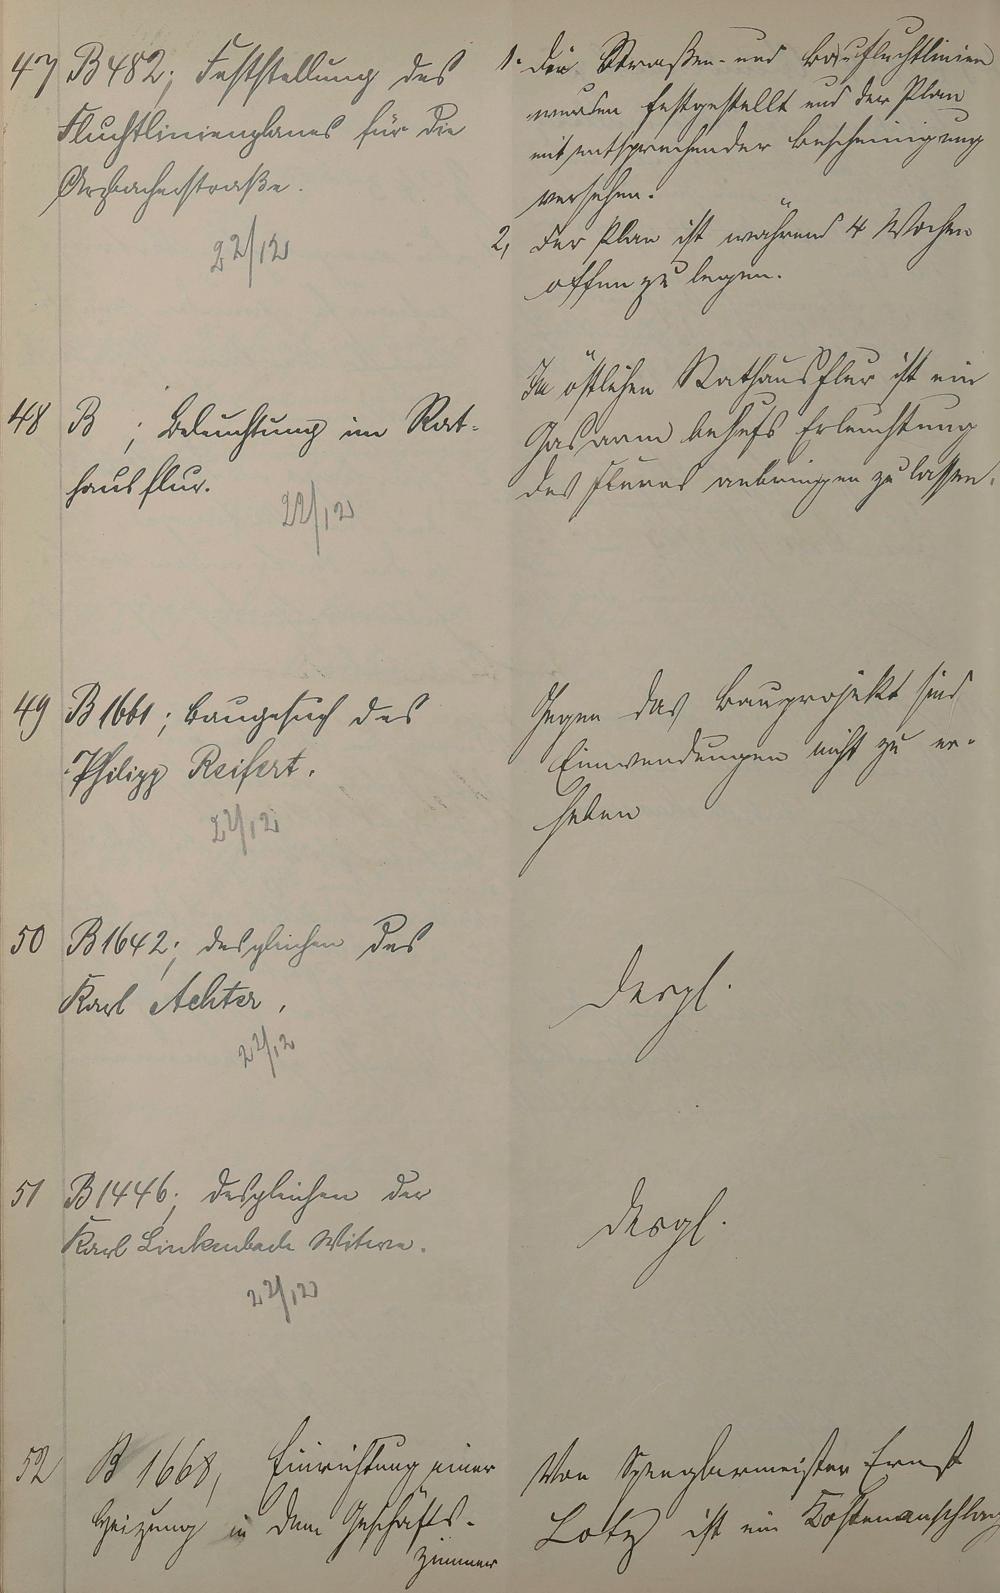 47 B 482; Feststellung des
Fluchtlinienplanes für die
Arzbacherstraße.
22/12
1. Die Straßen- und Baufluchtlinien
wurden festgestellt und der Plan
mit entsprechender Bescheinigung
versehen.
2, Der Plan ist während 4 Wochen
offen zu legen.
48 B ; Beleuchtung im Rat-
hausflur.
22/12
Im östlichen Rathausflur ist ein
Gasarm behufs Erleuchtung
des Flures anbringen zu lassen.
49 B 1661; Baugesuch des
Philipp Reifert.
22/12
Gegen das Bauprojekt sind
Einwendungen nicht zu er-
heben
50 B 1642; desgleichen des
Karl Achter.
22/12
desgl.
51 B 1446; desgleichen der
Karl Linkenbach Witwe.
22/12
desgl.
52 B 1668, Einrichtung einer
Heizung in dem Geschäfts-
zimmer
Von Spenglermeister Ernst
Lotz ist ein Kostenanschlag